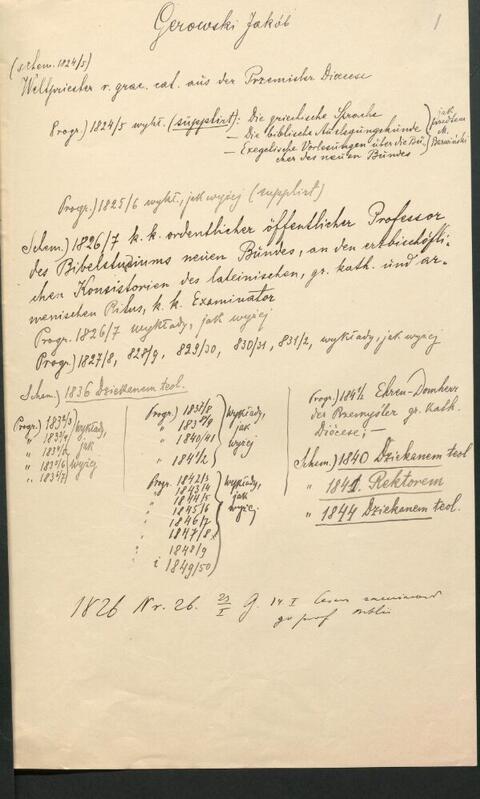 Gerowski Jakób
1
(schem. 1824/5)
Weltpriester r. grae. cat. aus der Przemisler Diöcese
Progr.) 1824/5 wykł. (supplirt): Die griechische Sprache
— Die biblische Auslegungskunde
— Exegetische Vorlesungen über die Bü-
cher des neuen Bundes
jak
przedtem
M.
Barwiński
Progr.) 1825/6 wykł., jak wyżej (supplirt)
Schem.) 1826/7 k. k. ordentlicher öffentlicher Professor
des Bibelstudiums neuen Bundes, an den erzbischöfli-
chen Konsistorien des lateinischen, gr. kath. und ar-
menischen Ritus, k. k. Examinator
Progr. 1826/7 wykłady, jak wyżej
Progr.) 1827/8, 828/9, 829/30, 830/31, 831/2, wykłady, jak wyżej
Schem.) 1836 Dziekanem teol.
Progr.) 1832/3
" 1833/4
" 1834/5
" 1835/6
" 1836/7
wykłady,
jak
wyżej
Progr.) 1837/8
" 1838/9
" 1840/41
" 1841/2
wykłady,
jak
wyżej
Progr. 1842/3
" 1843/4
" 1844/5
" 1845/6
" 1846/7
" 1847/8
" 1848/9
i 1849/50
wykłady,
jak
wyżej.
Progr.) 1841/2 Ehren-Domherr
der Przemysler gr. kath.
Diöcese; —
Schem.) 1840 Dziekanem teol
" 1841. Rektorem
" 1844 Dziekanem teol.
1826 Nr. 26. 23/I G. 14 I
prof